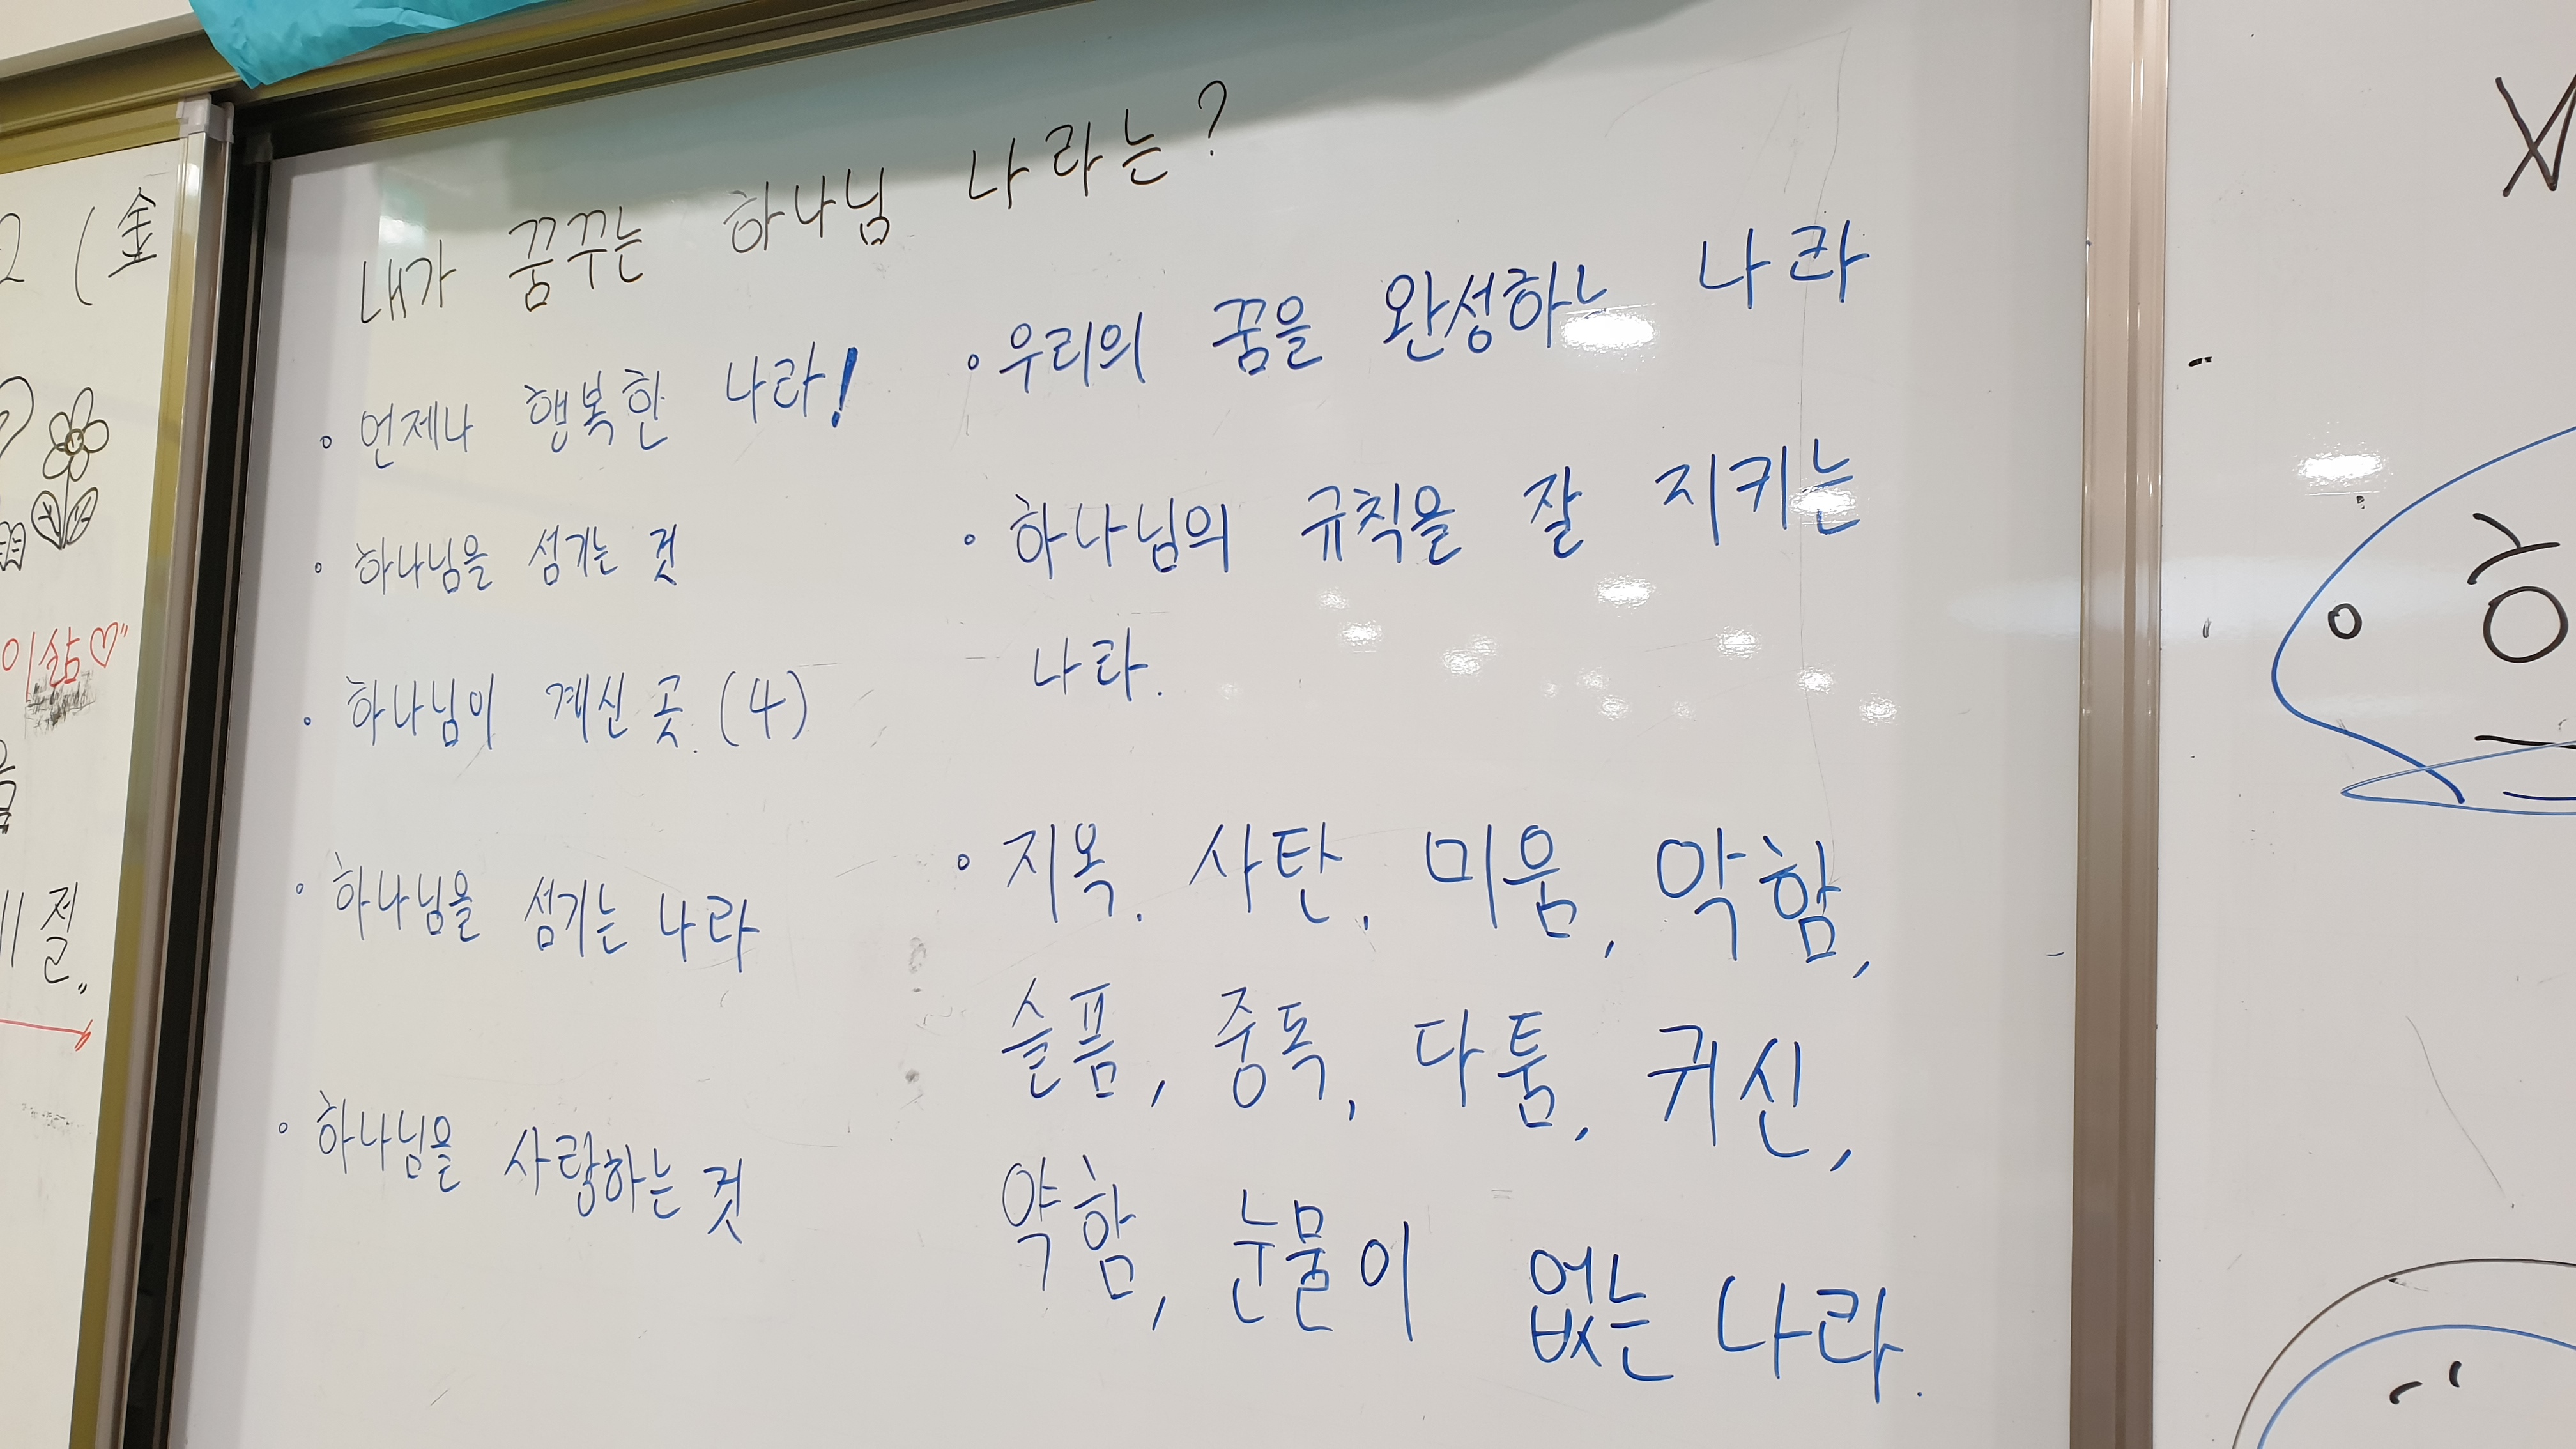 2 (金
이삭♡"
ㅔ 절"
내가 꿈꾸는 하나님 나라는?
• 언제나 행복한 나라!
• 하나님을 섬기는 것
• 하나님이 계신 곳. (4)
• 하나님을 섬기는 나라
• 하나님을 사랑하는 것
• 우리의 꿈을 완성하는 나라
• 하나님의 규칙을 잘 지키는
나라.
• 지옥, 사탄, 미움, 악함,
슬픔, 중독, 다툼, 귀신,
약함, 눈물이 없는 나라.